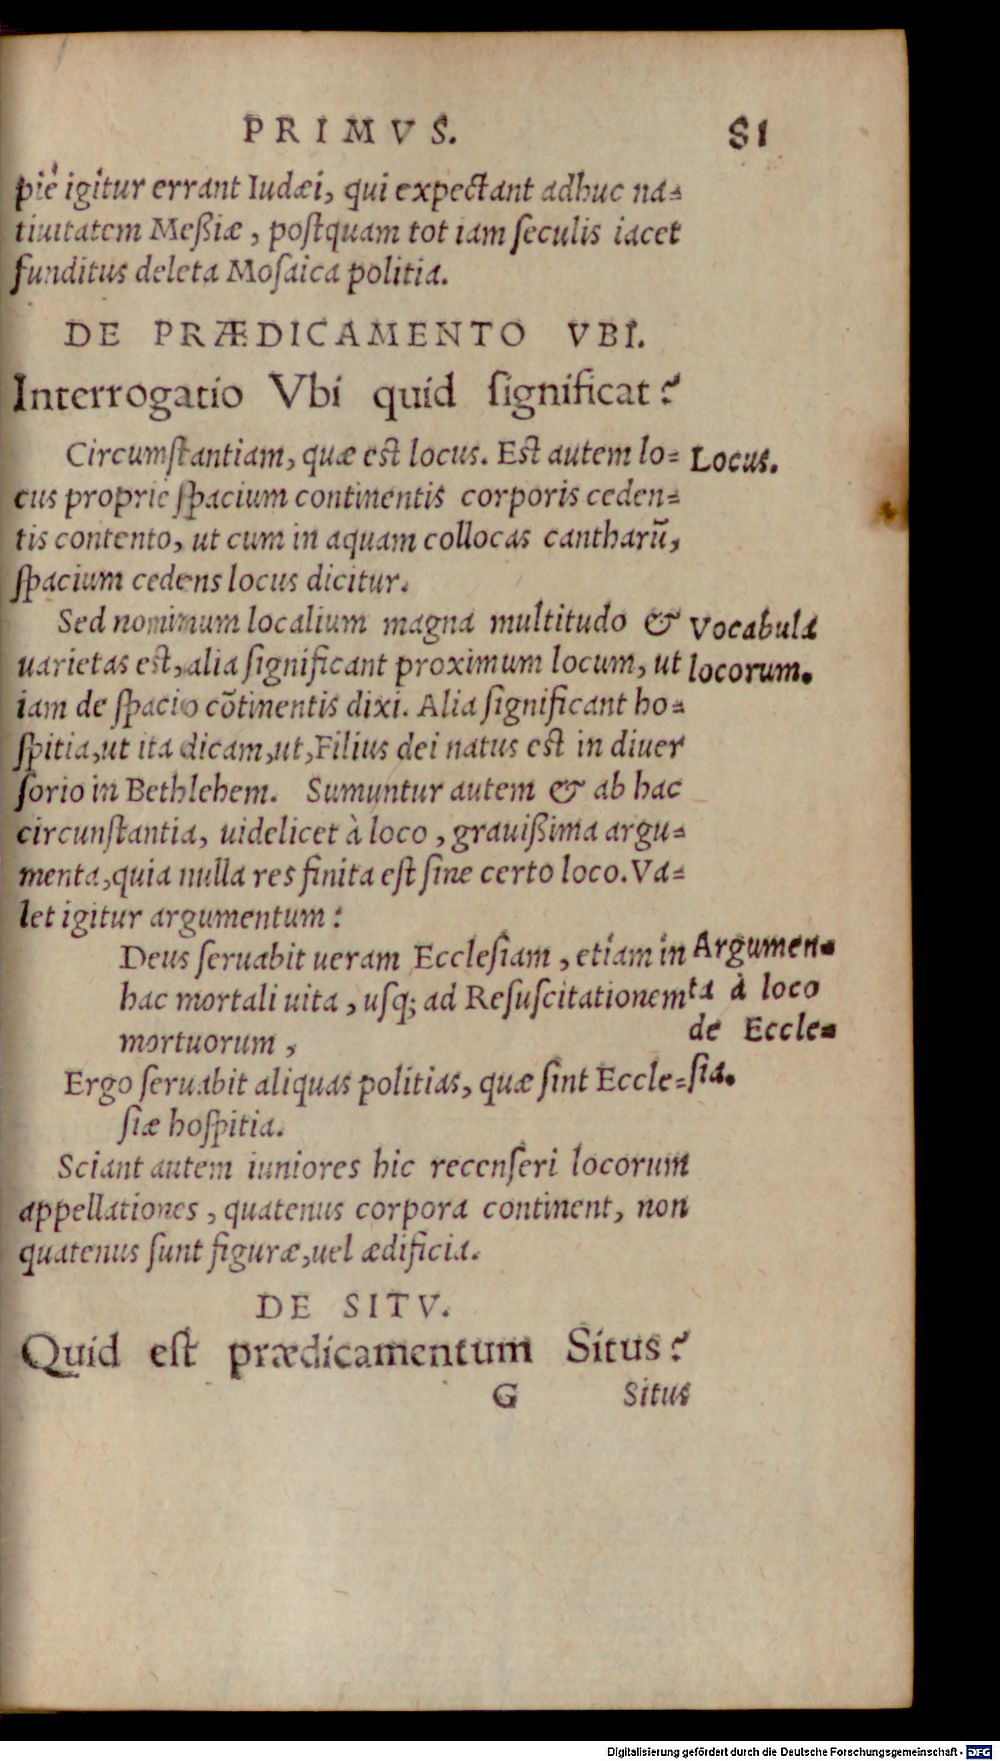 PRIMVS. 81
piè igitur errant Iudæi, qui expectant adhuc na-
tiuitatem Meßiæ, postquam tot iam seculis iacet
funditus deleta Mosaica politia.
DE PRÆDICAMENTO VBI.
Interrogatio Vbi quid significat?
Circumstantiam, quæ est locus. Est autem lo-
Locus.
cus propriè spacium continentis corporis ceden-
tis contento, ut cum in aquam collocas cantharũ,
spacium cedens locus dicitur.
Sed nominum localium magna multitudo &
Vocabula
uarietas est, alia significant proximum locum, ut
locorum.
iam de spacio cõtinentis dixi. Alia significant ho-
spitia, ut ita dicam, ut, Filius dei natus est in diuer
sorio in Bethlehem. Sumuntur autem & ab hac
circunstantia, uidelicet à loco, grauißima argu-
menta, quia nulla res finita est sine certo loco. Va-
let igitur argumentum:
Deus seruabit ueram Ecclesiam, etiam in
Argumen-
hac mortali uita, usq; ad Resuscitationem
ta à loco
mortuorum,
de Eccle-
Ergo seruabit aliquas politias, quæ sint Eccle-
sia.
siæ hospitia.
Sciant autem iuniores hic recenseri locorum
appellationes, quatenus corpora continent, non
quatenus sunt figuræ, uel ædificia.
DE SITV.
Quid est prædicamentum Situs?
G Situs
Digitalisierung gefördert durch die Deutsche Forschungsgemeinschaft - DFG